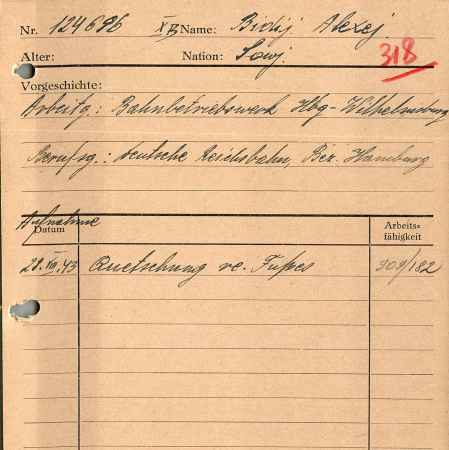 Nr. 124696 XB Name: Bidij Alexej
Alter: Nation: Sowj. 318
Vorgeschichte:
Arbeitg.: Bahnbetriebswerk Hbg-Wilhelmsburg
Berufsg.: Deutsche Reichsbahn, Bez. Hamburg
Aufnahme
Datum Arbeits-
fähigkeit
28.VIII.43 Quetschung re. Fußes 909/182